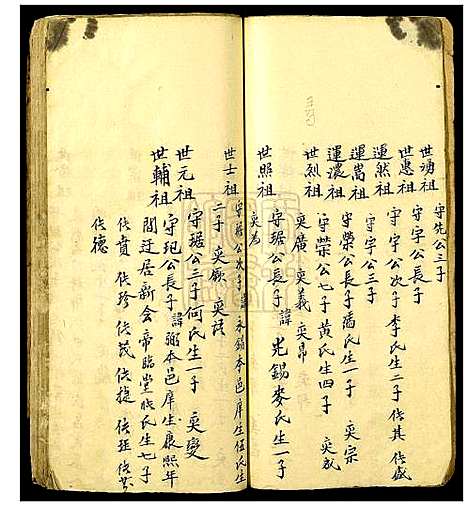 世璓祖 守先公三子
世惠祖 守宇公長子
運然祖 守宇公次子 李氏生二子 侁其 侁盛
運嵩祖 守宇公三子
運濃祖 守榮公長子 潘氏生一子 奕宗
世烈祖 守榮公七子 黃氏生四子 奕成
奕廣 奕義 奕昂
世照祖 守琚公長子 諱光錫 麥氏生一子
奕為
世士祖 守琚公次子 諱永錫 本邑庠生 伍氏生
二子 奕嶺 奕
世元祖 守琚公三子 何氏生一子 奕變
世輔祖 守玘公長子 諱弼 本邑庠生 康熙年
間迁居新會帝臨堂 氏生七子
侁賁 侁珍 侁茂 侁捷 侁班 侁
侁德